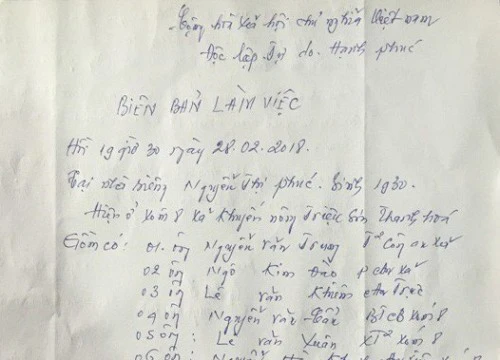 Cộng hòa xã hội chủ nghĩa Việt nam
Độc lập Tự do. Hạnh phúc
BIÊN BẢN LÀM VIỆC
Hồi 19 giờ 30 ngày 28.02.2018.
Tại nhà riêng Nguyễn Thị phúc. Sinh 1930.
Hiện ở xóm 8 xã Khuyến nông Triệu Sơn Thanh hoá
Gồm có: 01. ông Nguyễn văn Trung Tr Công an xã
02 ông Ngô Kim Đào P CAX xã
03 ông Lê văn Khiêm CA Trực
04 ông Nguyễn văn BTCB xóm 8
05 ông: Lê văn Xuân XTr xóm 8
06 ông: Nguyễn xóm 8